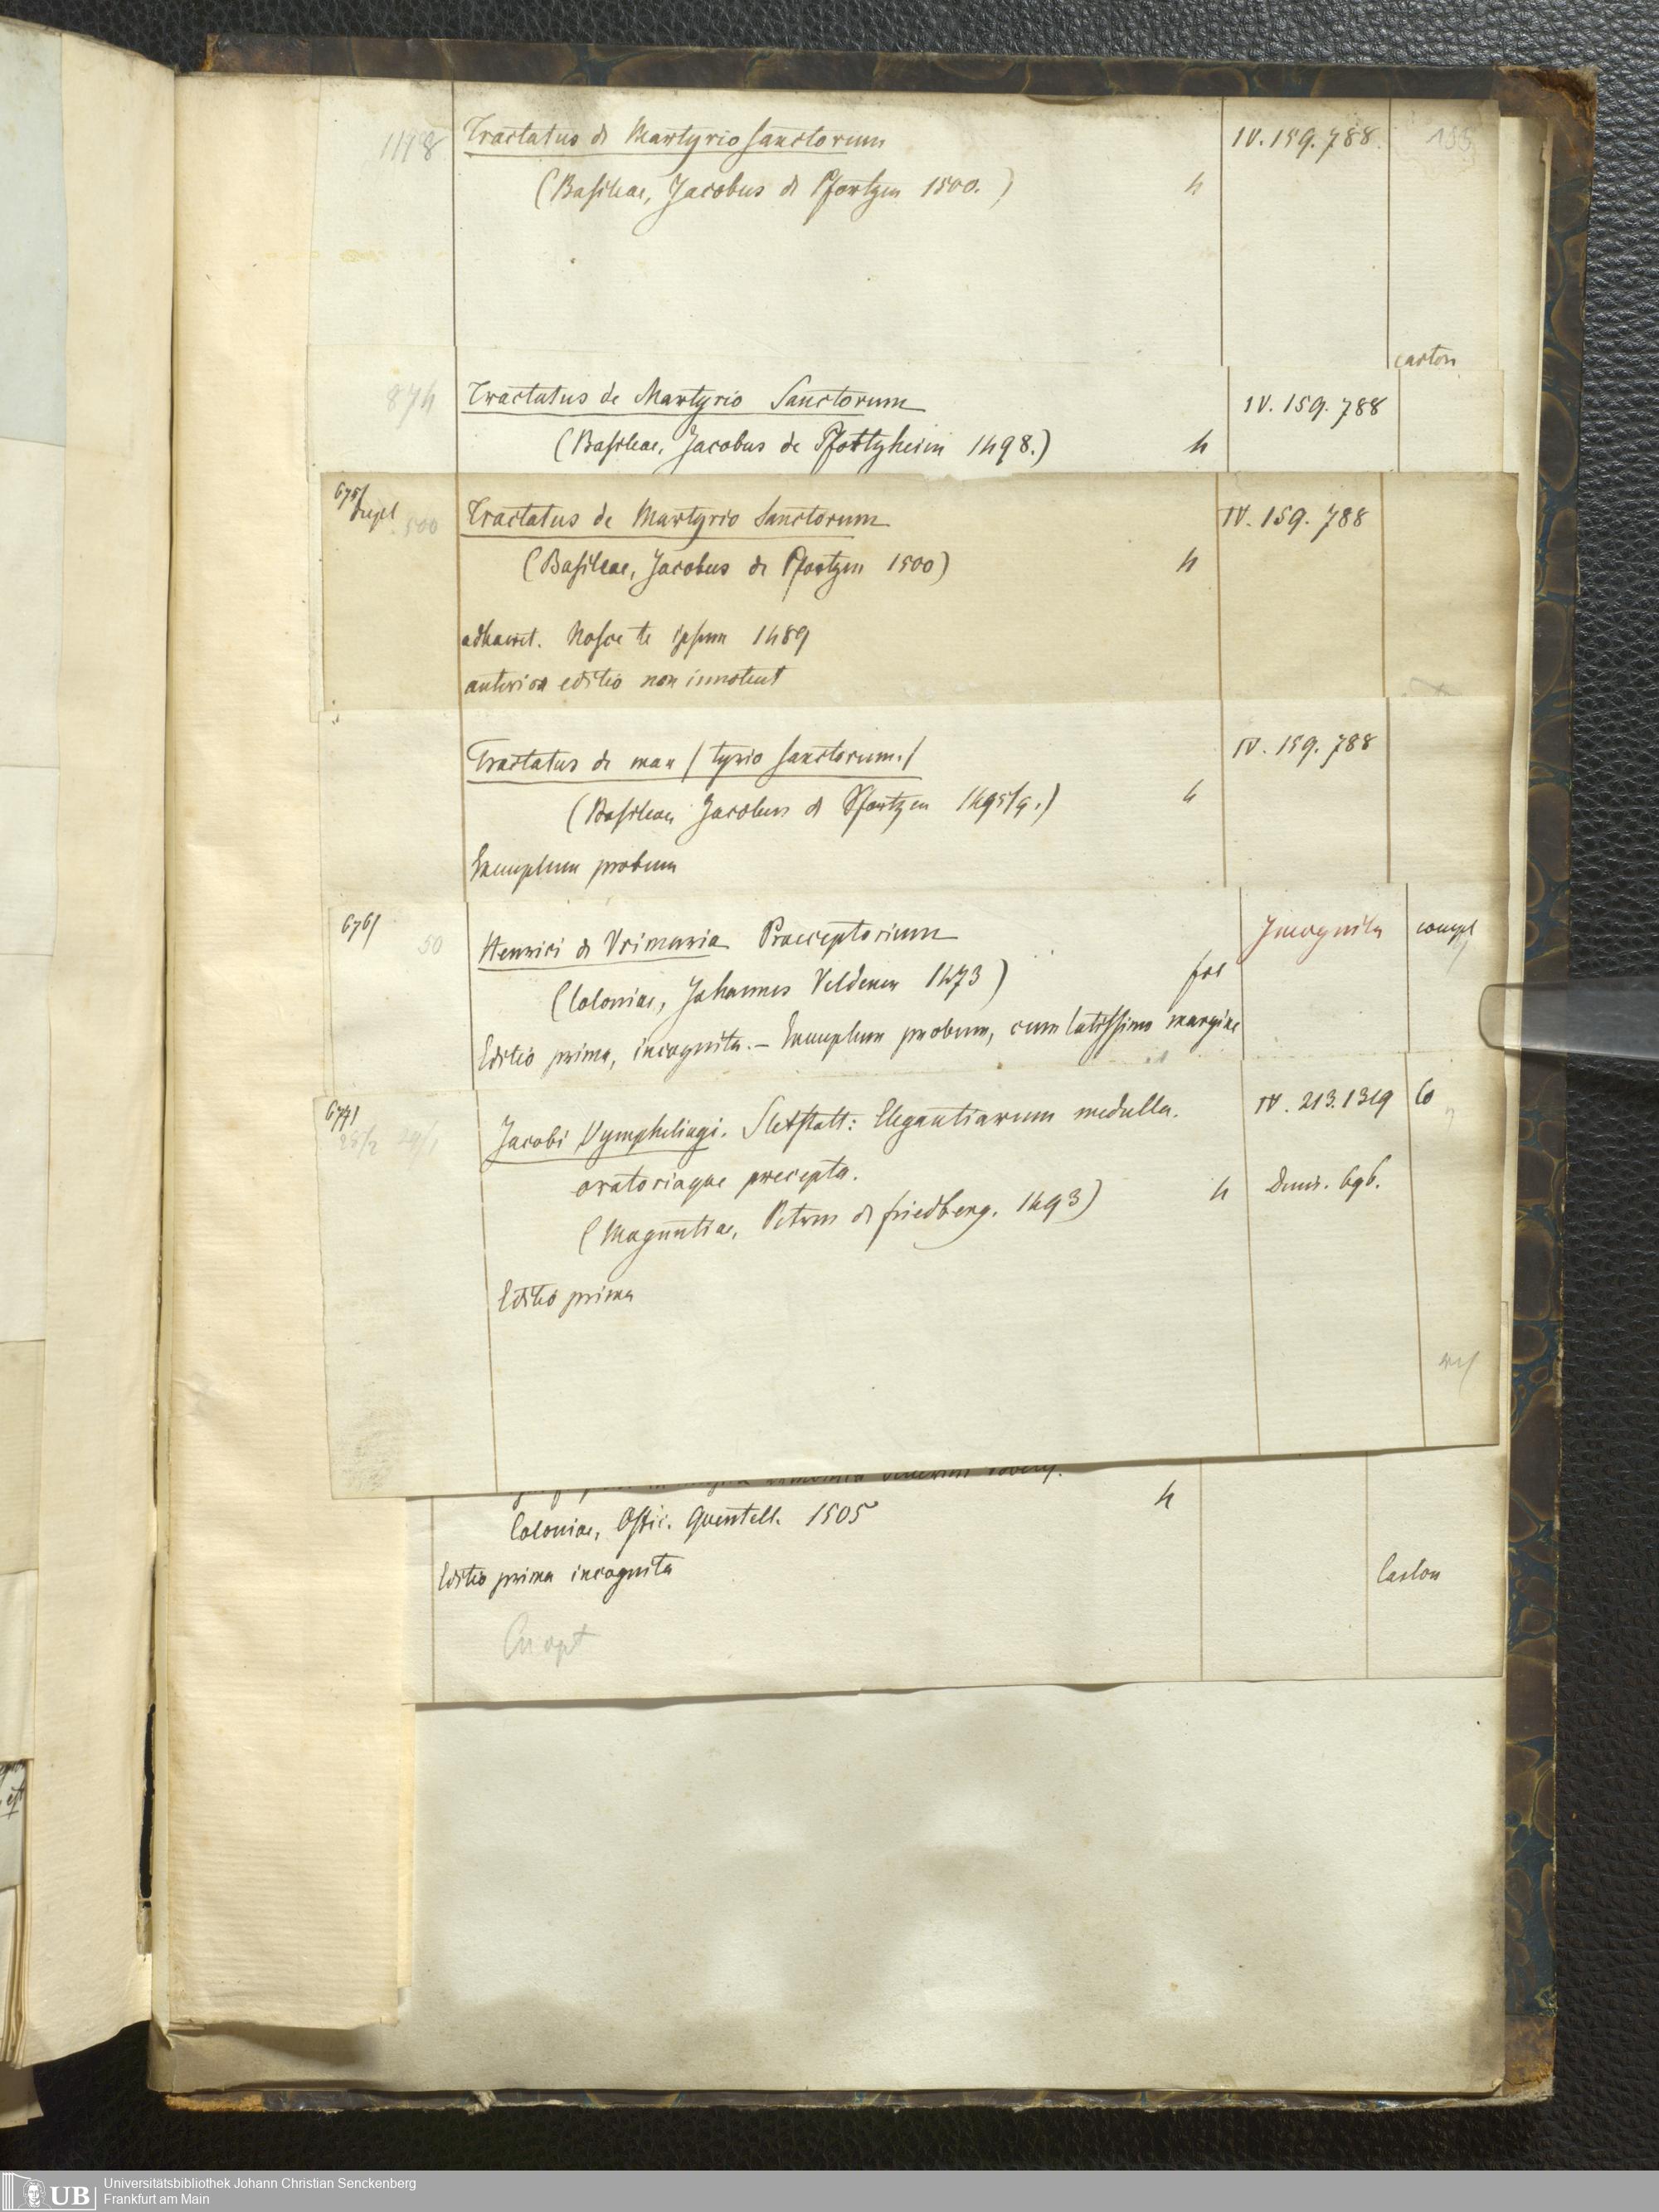 1178 Tractatus de Martyrio Sanctorum IV. 159. 788. 155
(Basileae, Jacobus de Pfortzen 1500.) 4
carton
874 Tractatus de Martyrio Sanctorum IV. 159. 788
(Basileae, Jacobus de Pfortzheim 1498.) 4
675/
dupl 500 Tractatus de Martyrio Sanctorum IV. 159. 788
(Basileae, Jacobus de Pfortzen 1500) 4
adhaeret. Nosce te ipsum 1489
anterior editio non innotuit
Tractatus de mar / tyrio sanctorum. / IV. 159. 788
(Basileae Jacobus de Pfortzen 149) 4
Exemplum probum
676/ 50 Henrici de Vrimaria Praeceptorium Incognita compl
(Coloniae, Johannes Veldener 1473) fol
Editio prima, incognita. – Exemplum probum, cum latissimo margine
677/ Jacobi Vympfelingi. Sletstatt: Elegantiarum medulla. IV. 213. 1319 Co
25/2 29/1
oratoriaque precepta.
(Maguntiae, Petrus de friedberg. 1493) 4 Denis. 696.
Editio prima
Coloniae, Offic. Quentell. 1505 4
Editio prima incognita Carton